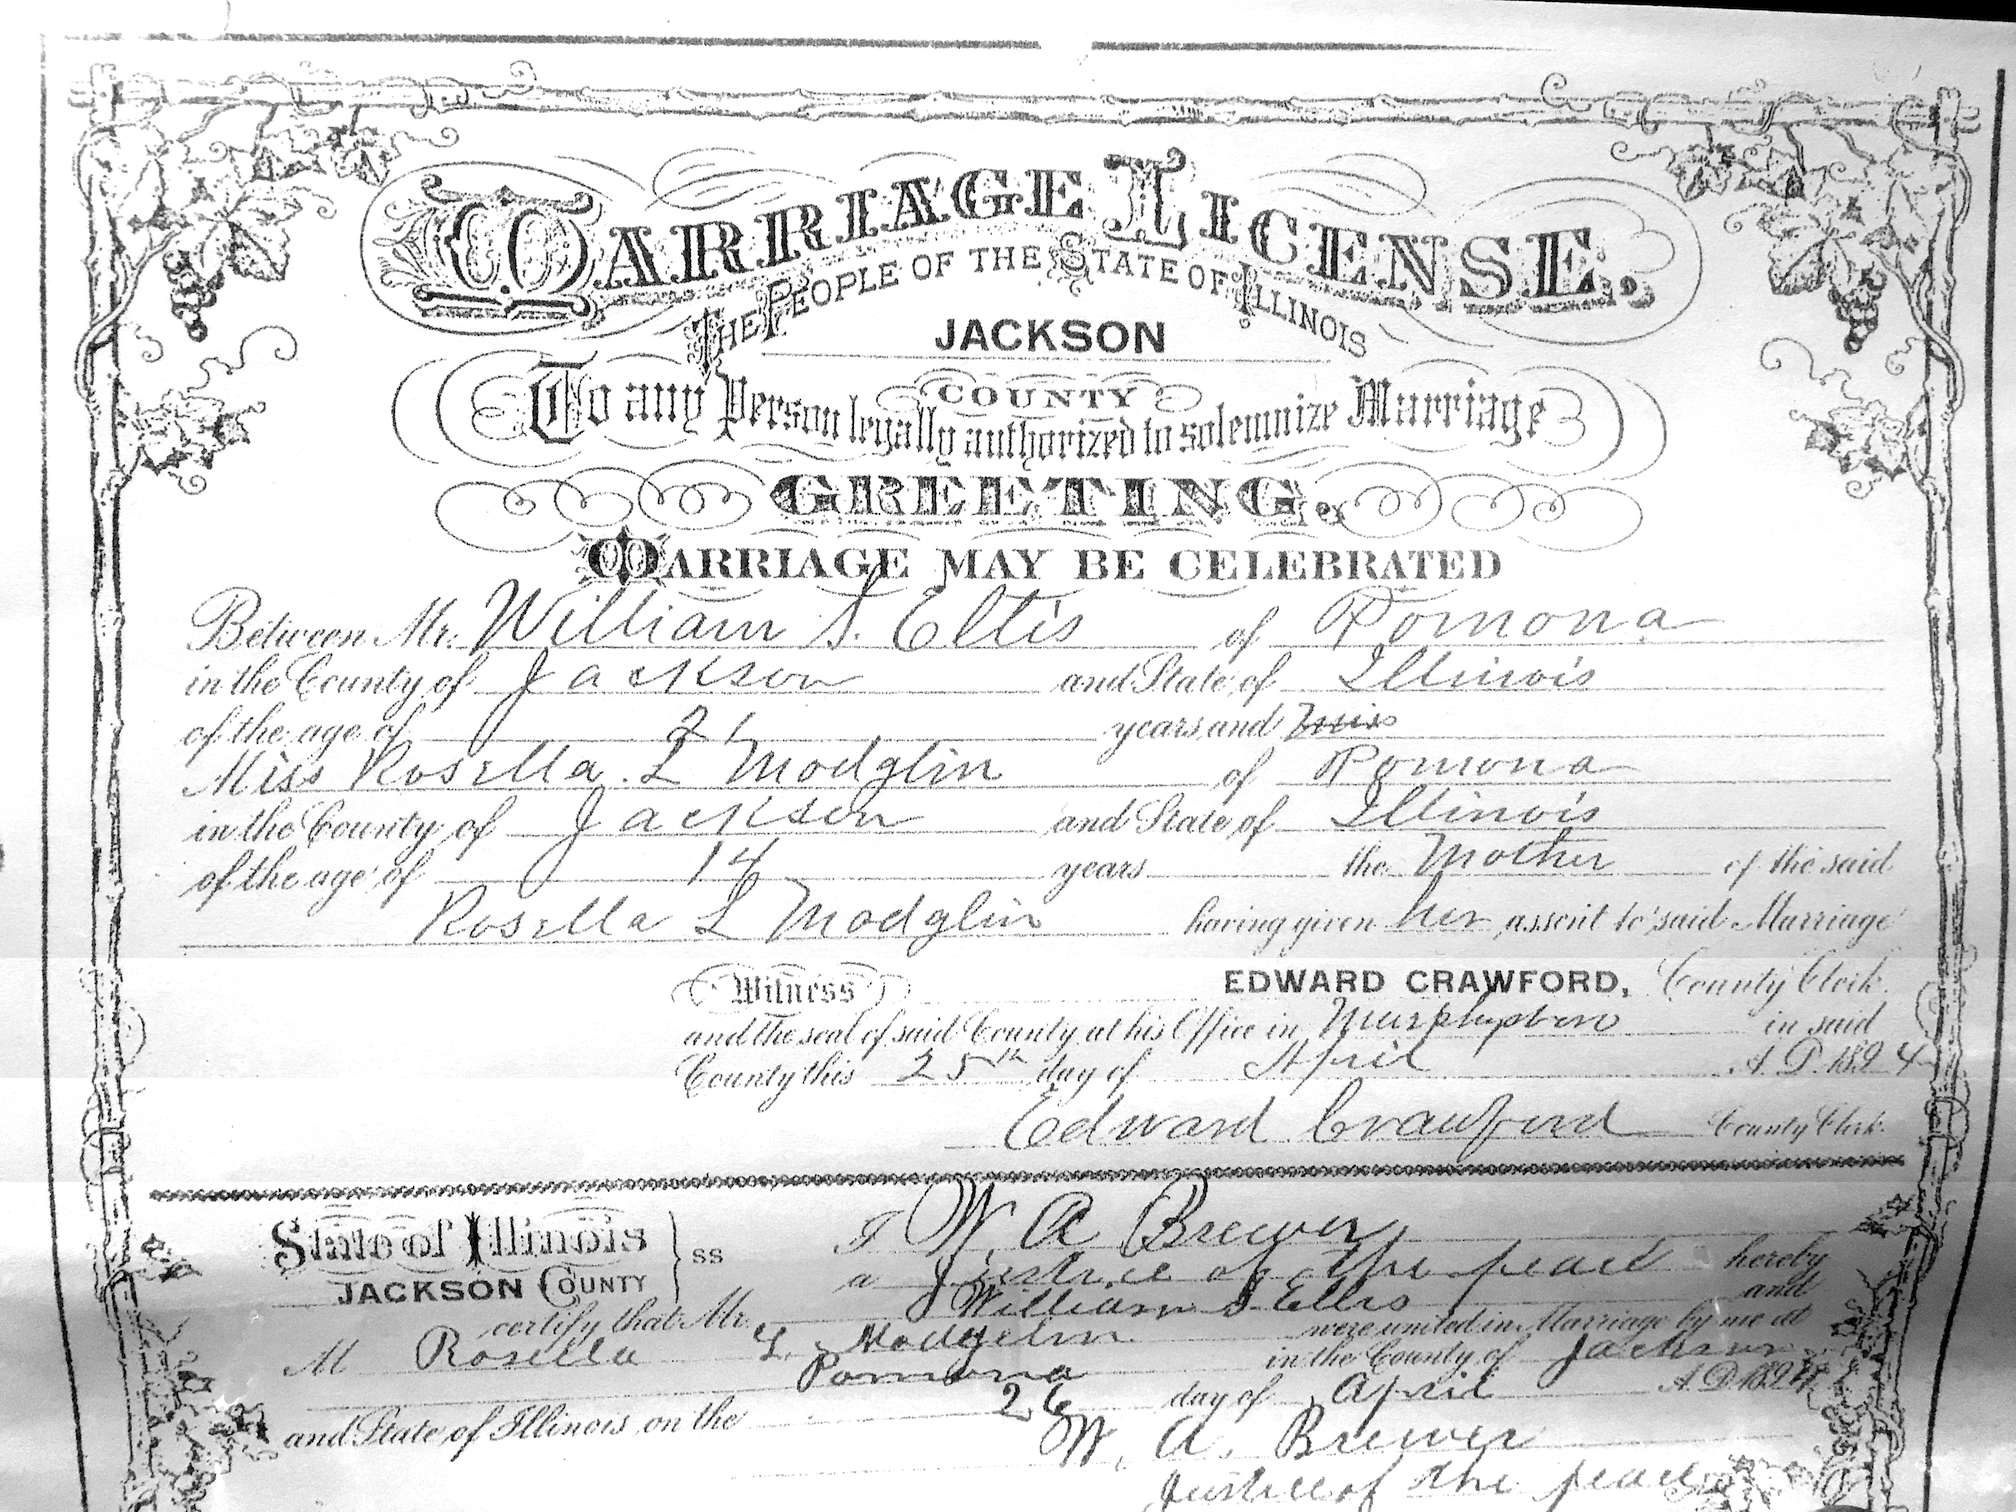 MARRIAGE LICENSE.
THE PEOPLE OF THE STATE OF ILLINOIS
JACKSON
COUNTY
To any Person legally authorized to solemnize Marriage
GREETING.
MARRIAGE MAY BE CELEBRATED
Between Mr. William S. Ellis of Pomona
in the County of Jackson and State of Illinois
of the age of 21 years and
Miss Rosella L Modglin of Pomona
in the County of Jackson and State of Illinois
of the age of 14 years the Mother of the said
Rosella L Modglin having given her assent to said Marriage
Witness EDWARD CRAWFORD, County Clerk
and the seal of said County at his Office in Murphysboro in said
County this 25th day of April A.D. 1894
Edward Crawford County Clerk.
State of Illinois } ss I W. A Brewer
JACKSON COUNTY a Justice of the peace hereby
certify that Mr. William S Ellis and
M Rosella L. Modgelin were united in Marriage by me at
Pomona in the County of Jackson
and State of Illinois, on the 26 day of April A.D. 1894
W. A. Brewer
Justice of the peace